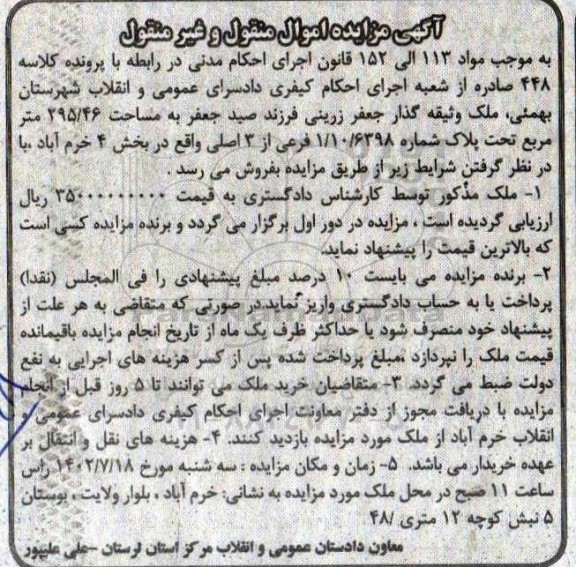 آگهی مزایده اموال منقول و غیر منقول
به موجب مواد ۱۱۳ الی ۱۵۲ قانون اجرای احکام مدنی در رابطه با پرونده کلاسه
۴۴۸ صادره از شعبه اجرای احکام کیفری دادسرای عمومی و انقلاب شهرستان
بهمئی، ملک وثیقه گذار جعفر زرینی فرزند صید جعفر به مساحت ۲۹۵/۴۶ متر
مربع تحت پلاک شماره ۱/۱۰/۶۳۹۸ فرعی از ۳ اصلی واقع در بخش ۴ خرم آباد ،با
در نظر گرفتن شرایط زیر از طریق مزایده بفروش می رسد .
۱- ملک مذکور توسط کارشناس دادگستری به قیمت ۳۵۰۰۰۰۰۰۰۰۰ ریال
ارزیابی گردیده است ، مزایده در دور اول برگزار می گردد و برنده مزایده کسی است
که بالاترین قیمت را پیشنهاد نماید.
۲- برنده مزایده می بایست ۱۰ درصد مبلغ پیشنهادی را فی المجلس (نقدا)
پرداخت یا به حساب دادگستری واریز نماید.در صورتی که متقاضی به هر علت از
پیشنهاد خود منصرف شود یا حداکثر ظرف یک ماه از تاریخ انجام مزایده باقیمانده
قیمت ملک را نپردازد ،مبلغ پرداخت شده پس از کسر هزینه های اجرایی به نفع
دولت ضبط می گردد. ۳- متقاضیان خرید ملک می توانند تا ۵ روز قبل از انجام
مزایده با دریافت مجوز از دفتر معاونت اجرای احکام کیفری دادسرای عمومی و
انقلاب خرم آباد از ملک مورد مزایده بازدید کنند. ۴- هزینه های نقل و انتقال بر
عهده خریدار می باشد. ۵- زمان و مکان مزایده : سه شنبه مورخ ۱۴۰۲/۷/۱۸ راس
ساعت ۱۱ صبح در محل ملک مورد مزایده به نشانی: خرم آباد ، بلوار ولایت ، بوستان
۵ نبش کوچه ۱۲ متری /۴۸
معاون دادستان عمومی و انقلاب مرکز استان لرستان -علی علیپور